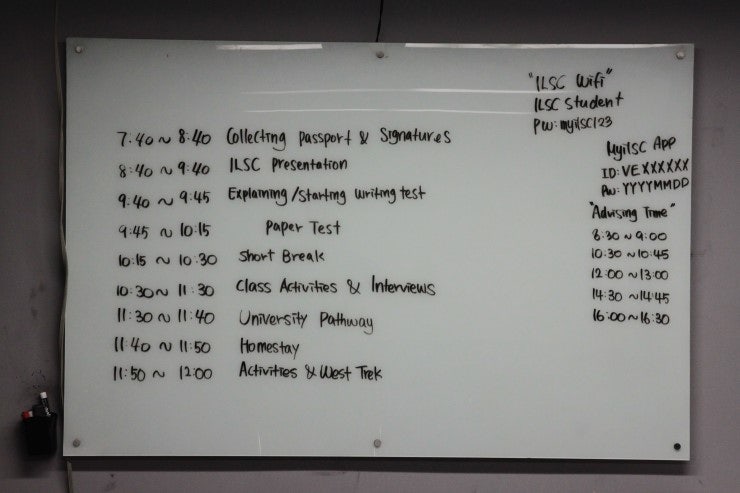 7:40 ~ 8:40 Collecting Passport & Signatures
8:40 ~ 9:40 ILSC Presentation
9:40 ~ 9:45 Explaining/Starting writing test
9:45 ~ 10:15 Paper Test
10:15 ~ 10:30 Short Break
10:30 ~ 11:30 Class Activities & Interviews
11:30 ~ 11:40 University Pathway
11:40 ~ 11:50 Homestay
11:50 ~ 12:00 Activities & West Trek
"ILSC Wifi"
ILSC Student
PW: myilsc123
MyilSC App
ID: VEXXXXXX
PW: YYYYMMDD
"Advising Time"
8:30 ~ 9:00
10:30 ~ 10:45
12:00 ~ 13:00
14:30 ~ 14:45
16:00 ~ 16:30